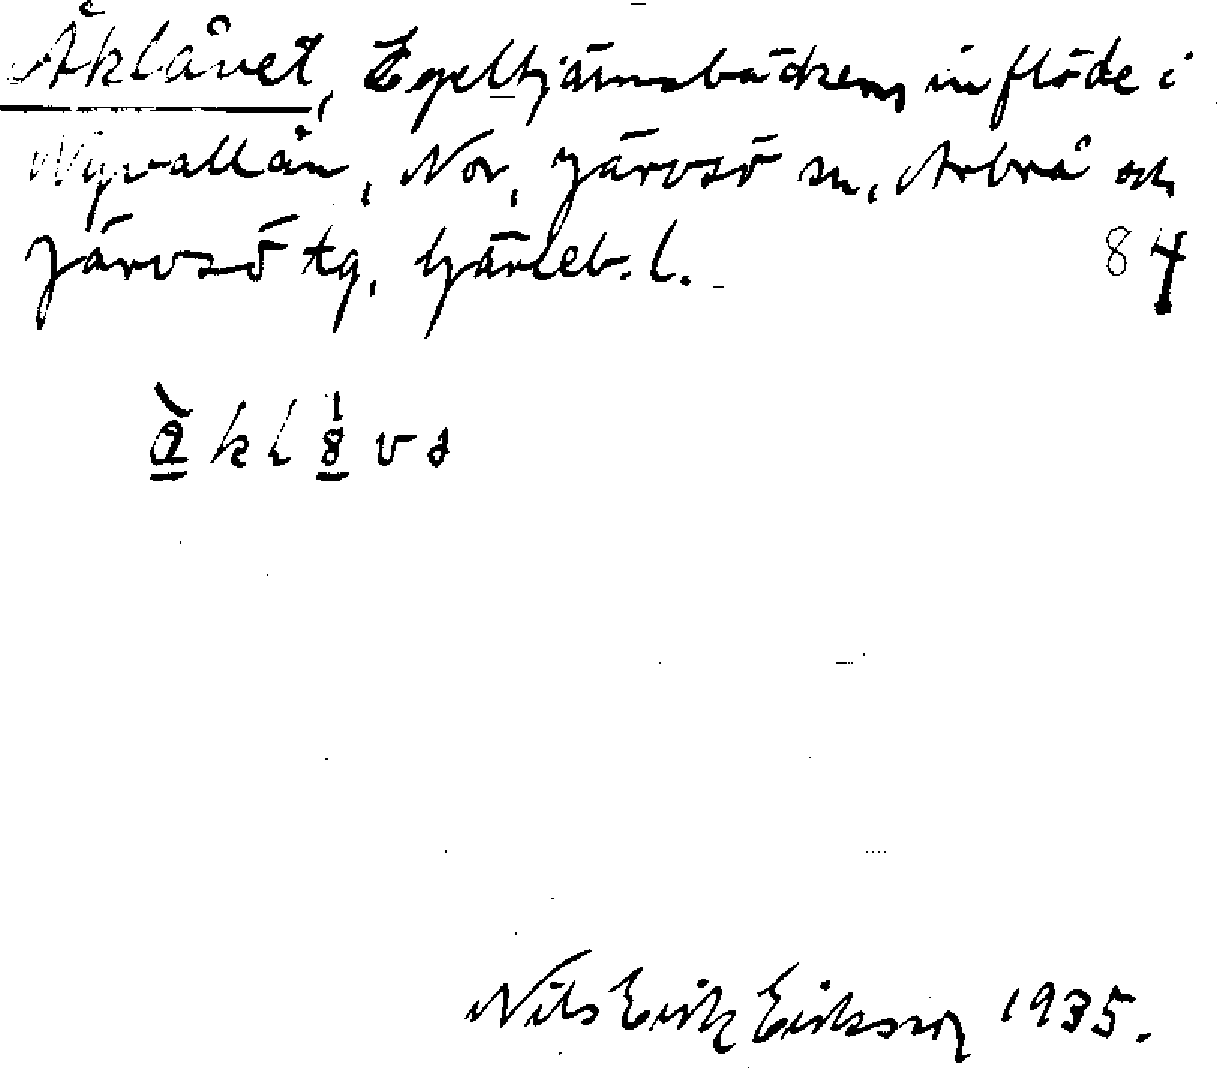 Åklåvet, Egeltjärnsbäckens inflöde i
Nyvallån, Nor, Järvsö sn, Arbrå och
Järvsö tg, Gävleb. l. 84
Nils Erik Eriksson 1935.